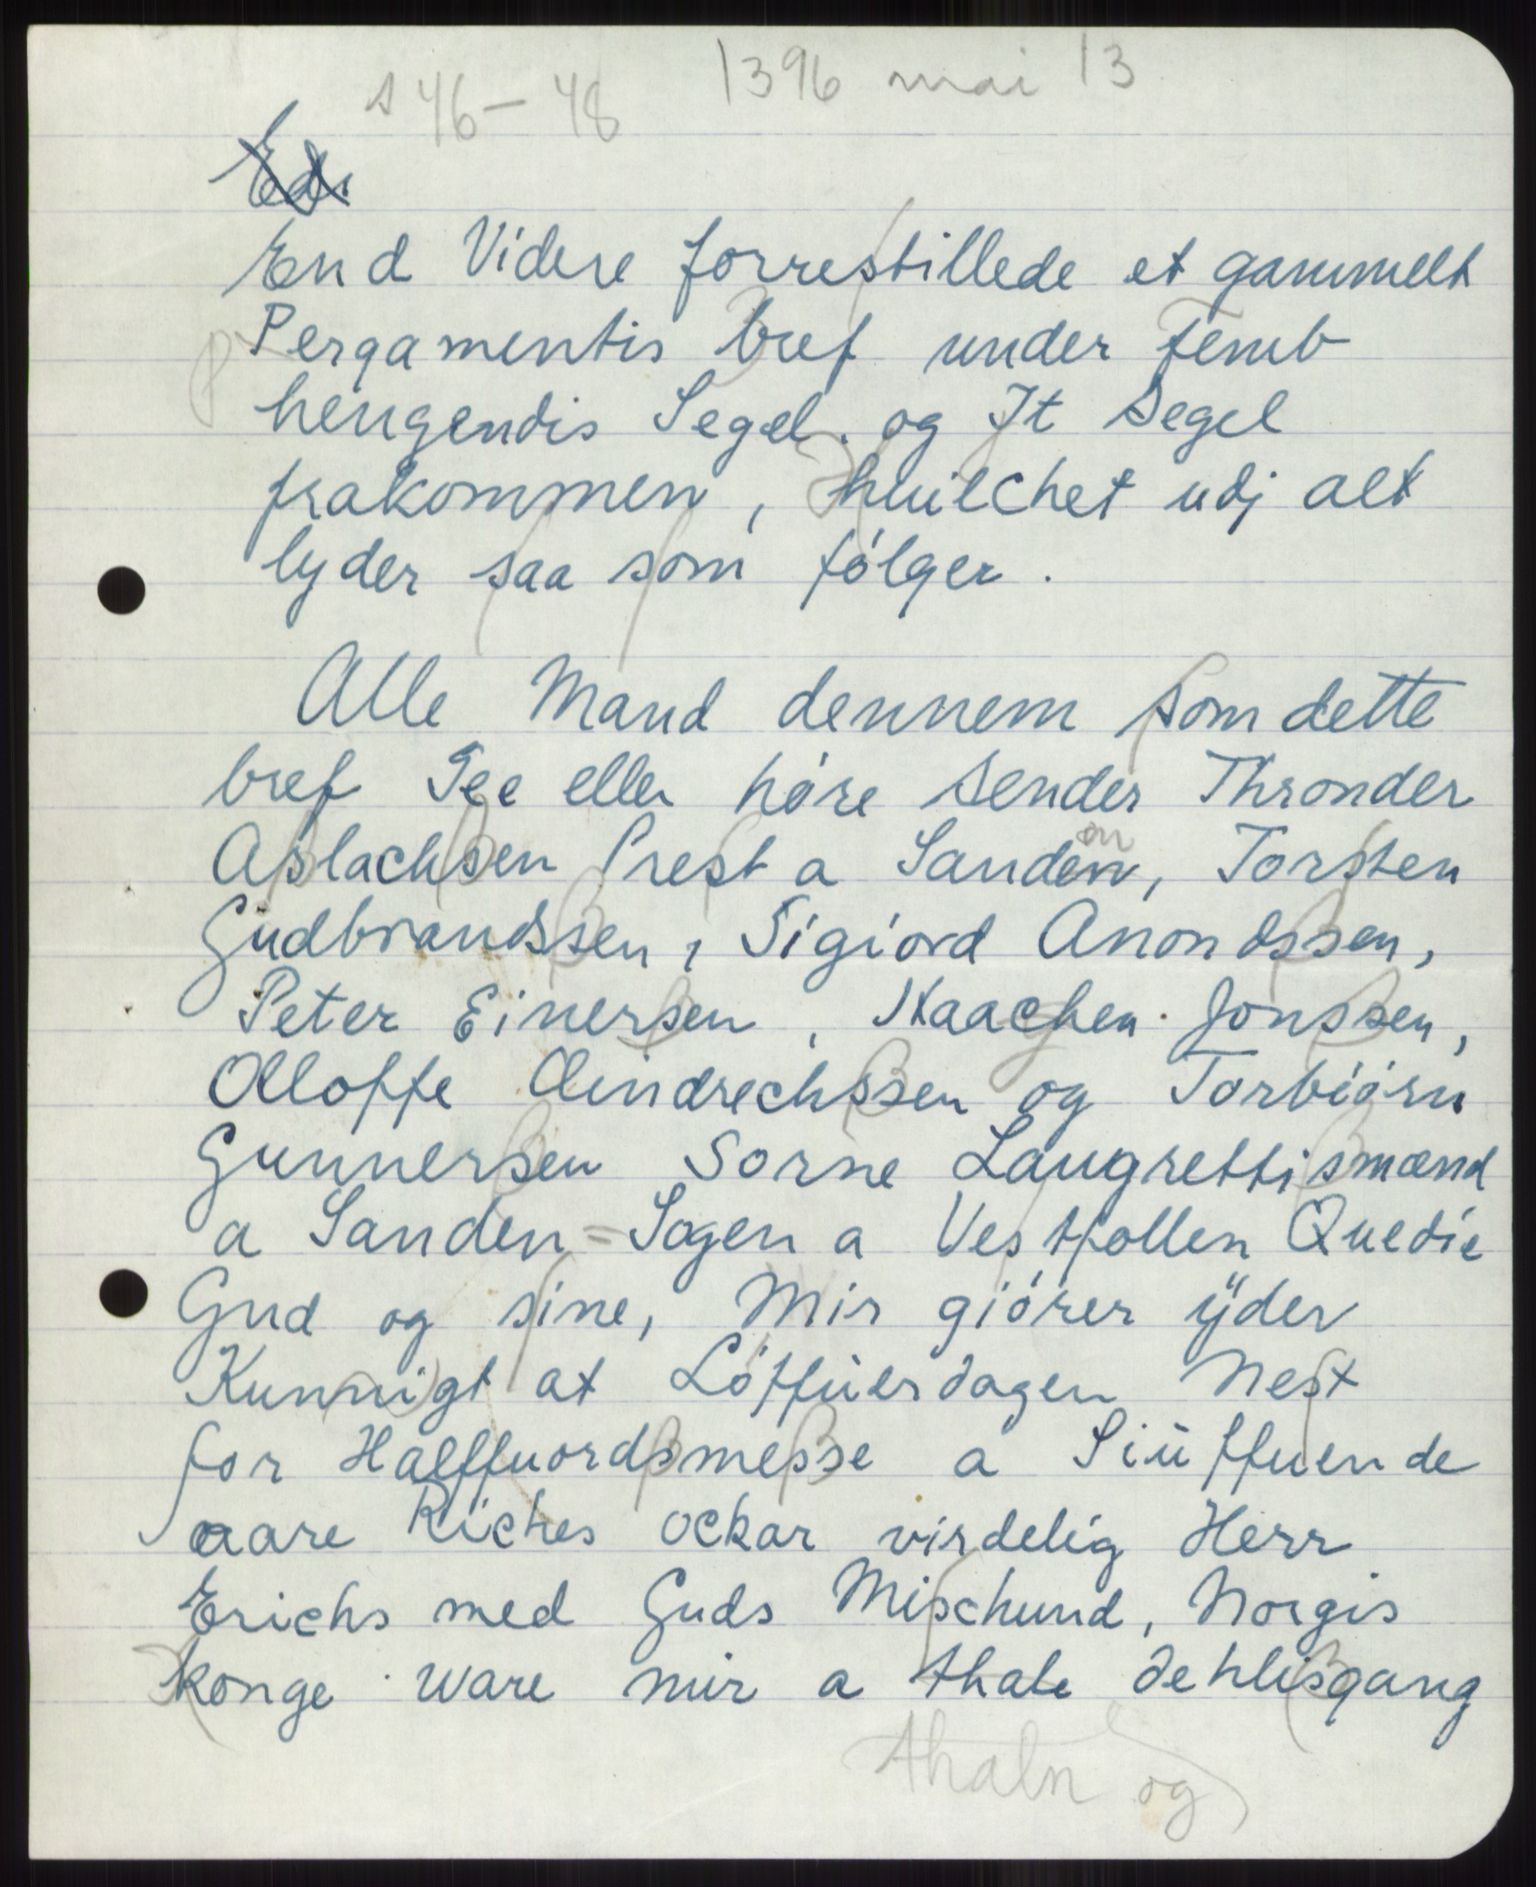 s 46-48 1396 mai 13
End Videre forrestillede et gammelt
Pergamentis bref under femb
hengendis Segel. og It Segel
frakommen, huilchet udj alt
lyder saa som følger.
Alle Mand dennem som dette
bref See eller høre sender Thronder
Aslachsen Prest a Sanden, Torsten
Gudbrandssen, Sigiord Anondssen,
Peter Einersen, Haachen Jonssen,
Olloffe Eindrechssen og Torbiørn
Gunnersen Sorne Laugrettismænd
a Sanden=Sogen a Vestfollen Quedie
Gud og sine, Mir giører ÿder
Kunnigt at Løffuerdagen Nest
for Halffuordsmesse a Siuffuende
aare Riches ockar virdelig Herr
Erichs med Guds Mischund, Norgis
konge ware mir a thale dehlisgang
thaln og